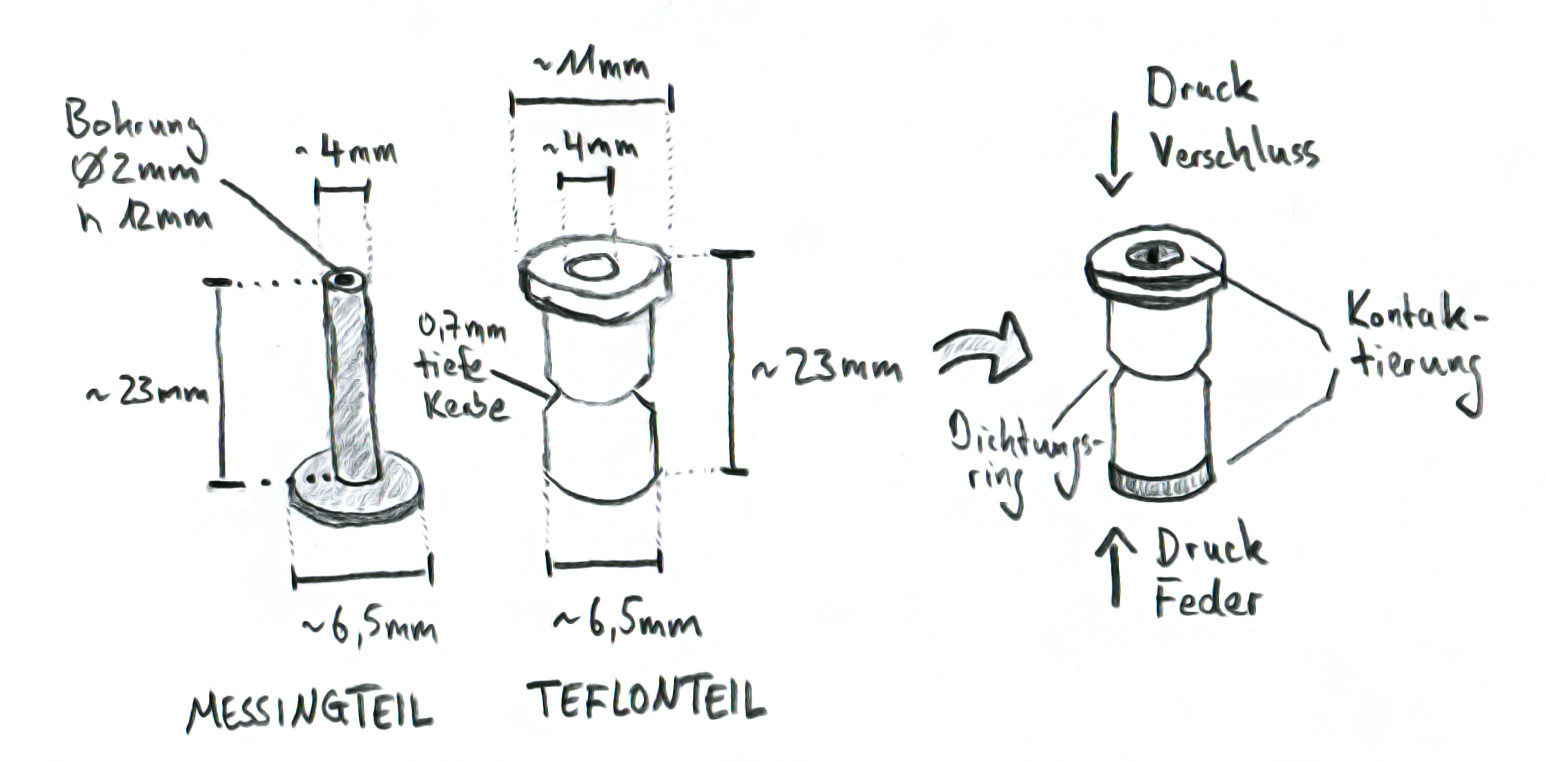 Bohrung
Ø2mm
h 12mm
~4mm
~23mm
~6,5mm
MESSINGTEIL
~11mm
~4mm
0,7mm
tiefe
Kerbe
~23mm
~6,5mm
TEFLONTEIL
Druck
Verschluss
Kontak-
tierung
Dichtungs-
ring
Druck
Feder